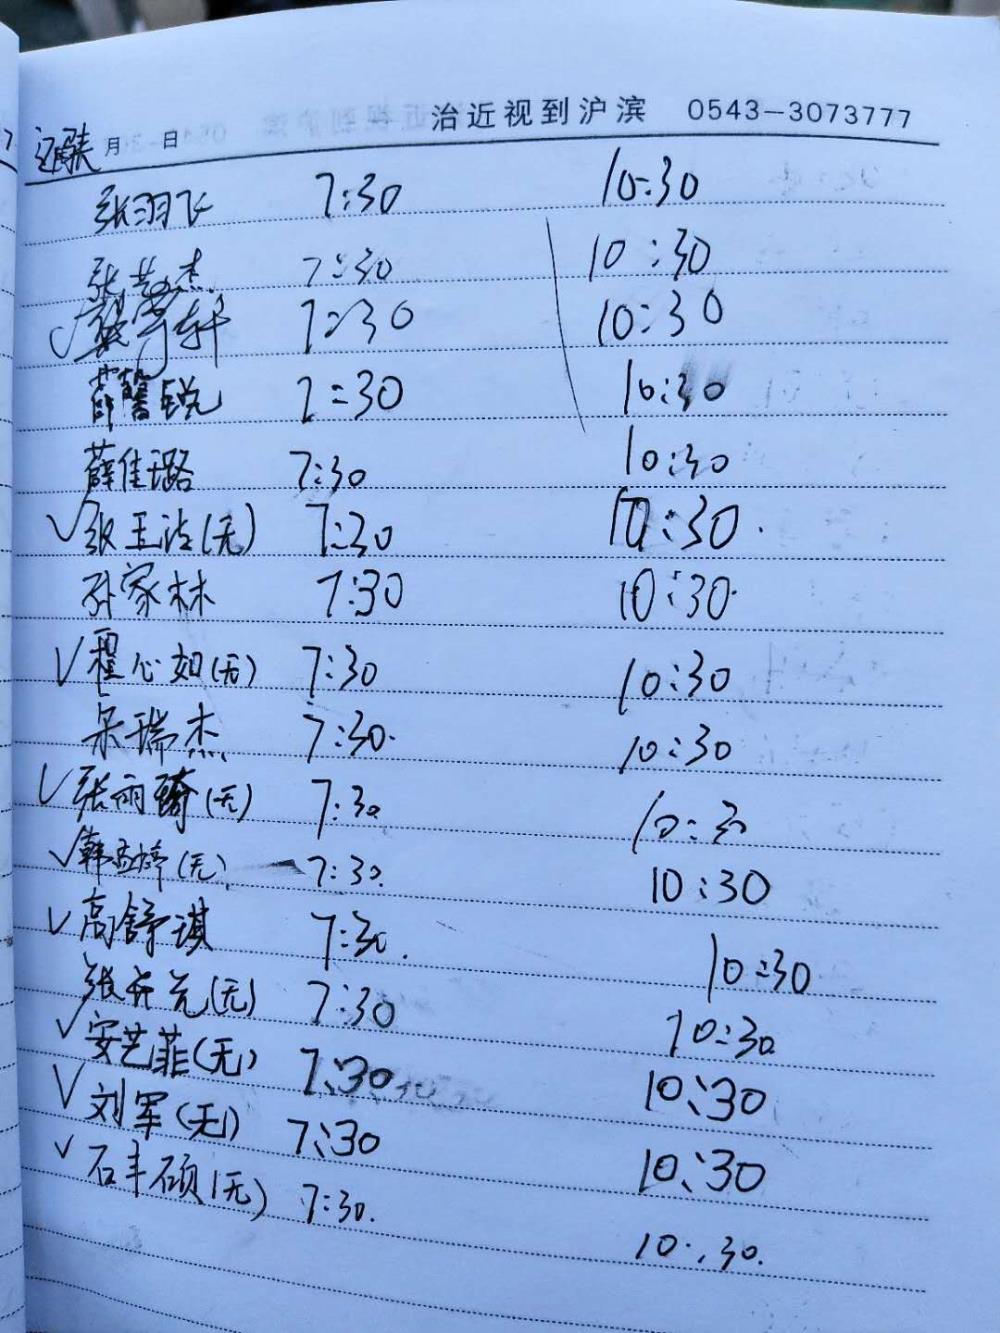 治近视到沪滨 0543-3073777
月 日
张羽飞 7:30 10:30
张艺杰 7:30 10:30
7:30 10:30
薛馨锐 7:30 10:30
薛佳璐 7:30 10:30
√张玉洁(无) 7:30 10:30.
孙家林 7:30 10:30.
√翟心如(无) 7:30 10:30
朱瑞杰 7:30. 10:30
√张雨琦(无) 7:30 10:30
√韩孟婷(无) 7:30. 10:30
√高舒琪 7:30. 10:30
张卉芫(无) 7:30 10:30
√安艺菲(无) 7:30 10:30
√刘军(无) 7:30 10:30
√石丰硕(无) 7:30. 10:30.